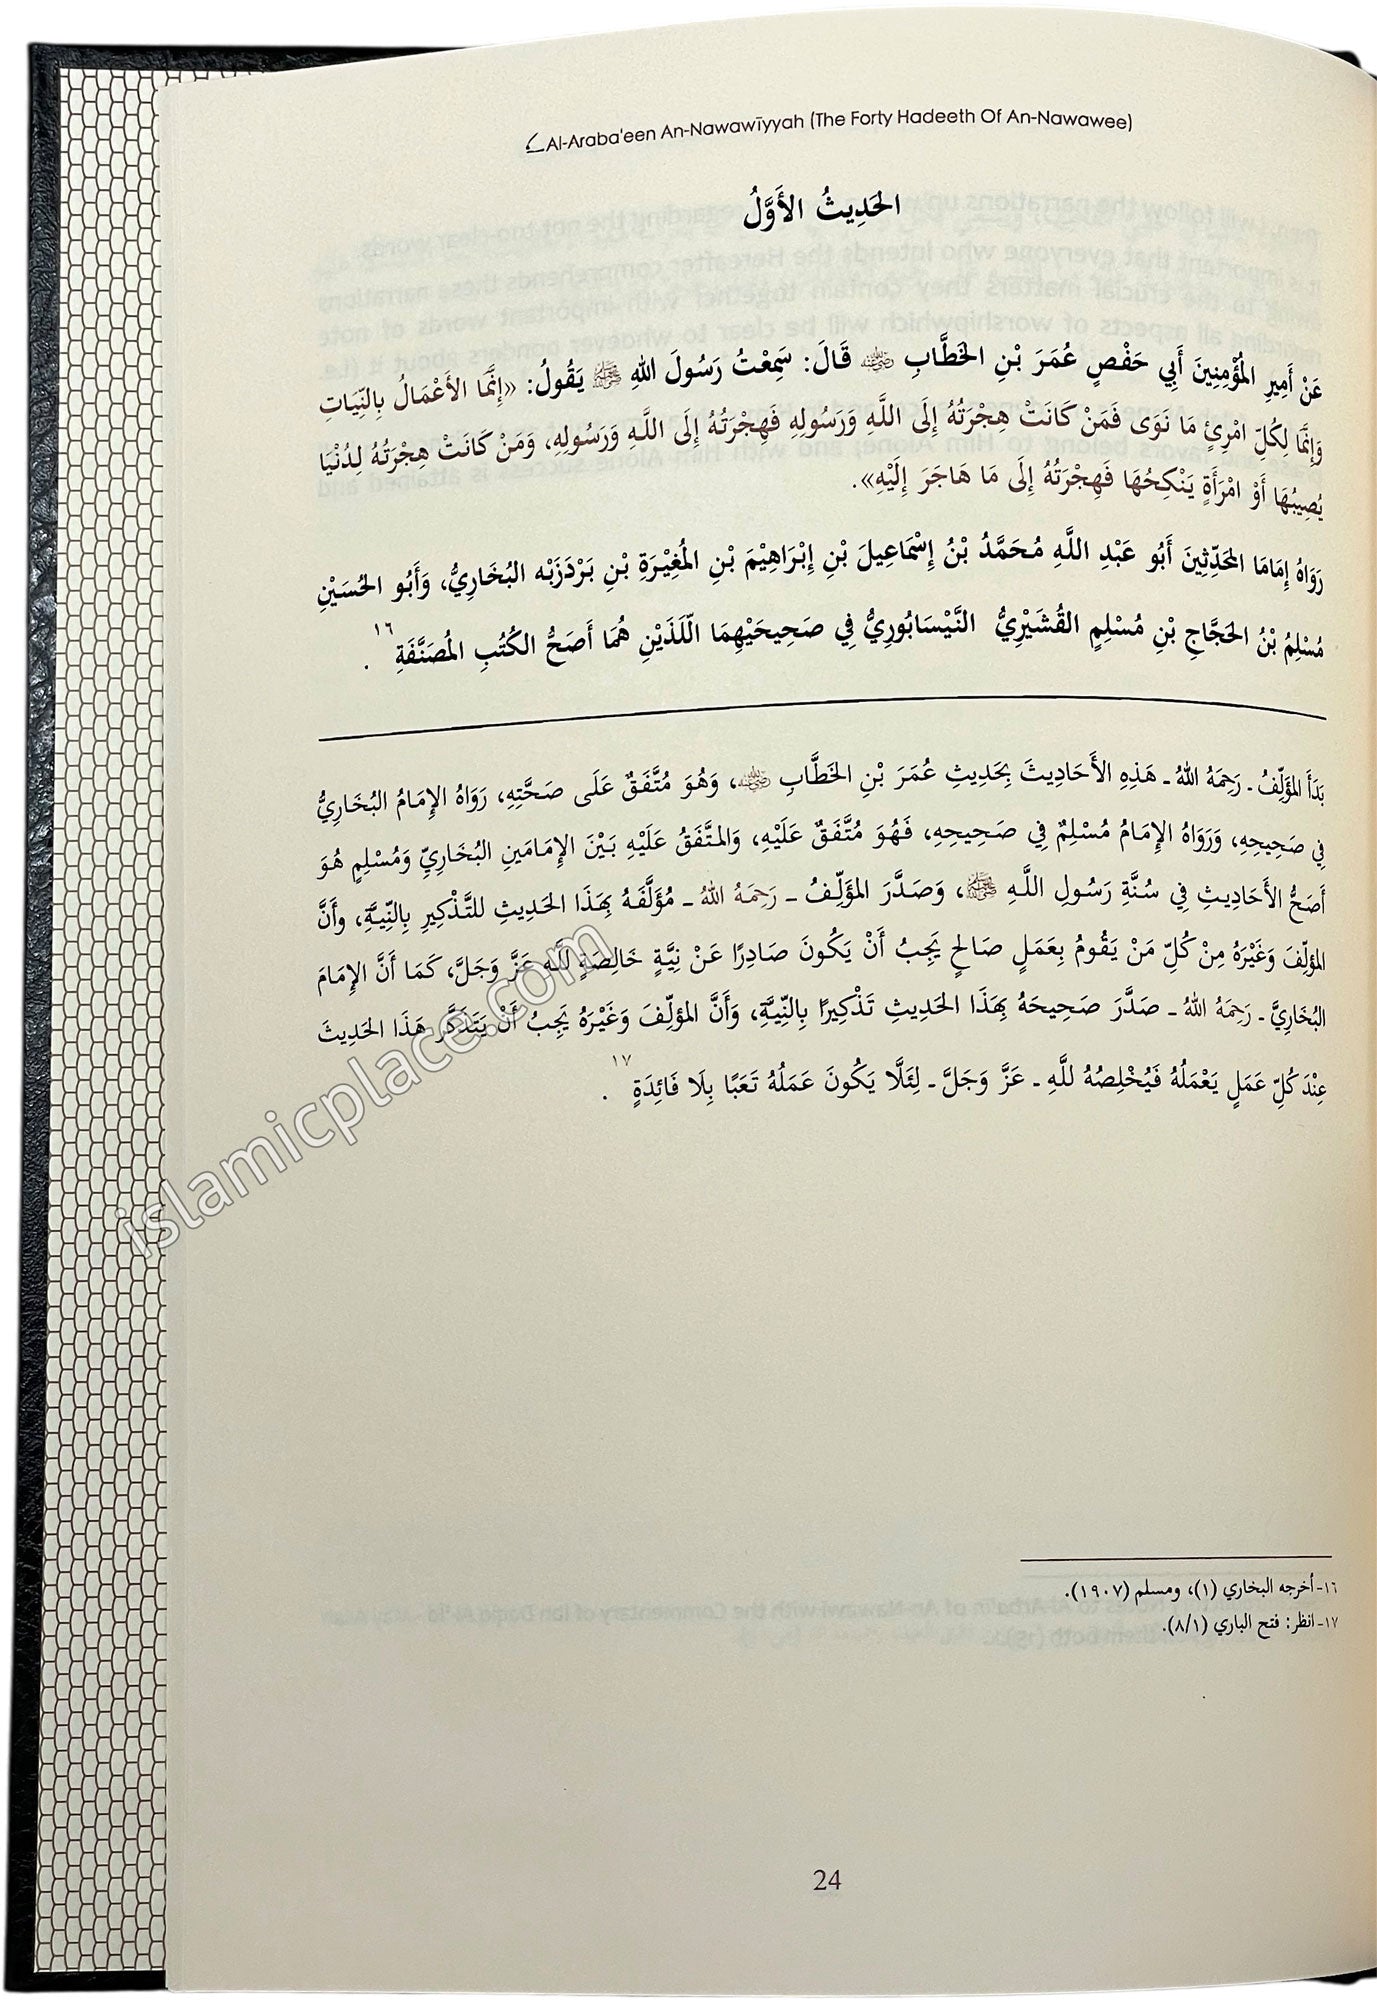 Al-Araba'een An-Nawawīyyah (The Forty Hadeeth Of An-Nawawee)
الحَدِيثُ الأَوَّلُ
عَنْ أَمِيرِ المُؤْمِنِينَ أَبِي حَفْصٍ عُمَرَ بْنِ الخَطَّابِ ﵁ قَالَ: سَمِعْتُ رَسُولَ اللهِ ﷺ يَقُولُ: «إِنَّمَا الأَعْمَالُ بِالنِّيَاتِ
وَإِنَّمَا لِكُلِّ امْرِئٍ مَا نَوَى فَمَنْ كَانَتْ هِجْرَتُهُ إِلَى اللَّه وَرَسُولِهِ فَهِجْرَتُهُ إِلَى اللَّهِ وَرَسُولِهِ، وَمَنْ كَانَتْ هِجْرَتُهُ لِدُنْيَا
يُصِيبُهَا أَوْ امْرَأَةٍ يَنْكِحُهَا فَهِجْرَتُهُ إِلَى مَا هَاجَرَ إِلَيْهِ».
رَوَاهُ إِمَامَا المُحَدِّثِينَ أَبُو عَبْدِ اللَّهِ مُحَمَّدُ بْنُ إِسْمَاعِيلَ بْنِ إِبْرَاهِيْمَ بْنِ المُغِيْرَةِ بْنِ بَرْدَزَبْه البُخَارِيُّ، وَأَبُو الحُسَيْنِ
مُسْلِمُ بْنُ الحَجَّاجِ بْنِ مُسْلِمٍ القُشَيْرِيُّ النَّيْسَابُورِيُّ فِي صَحِيحَيْهِمَا الَّلَذَيْنِ هُمَا أَصَحُّ الكُتُبِ المُصَنَّفَةِ ١٦.
بَدَأَ المُؤَلِّفُ ـ رَحِمَهُ اللهُ ـ هَذِهِ الأَحَادِيثَ بِحَدِيثِ عُمَرَ بْنِ الخَطَّابِ ﵁، وَهُوَ مُتَّفَقٌ عَلَى صَحَّتِهِ، رَوَاهُ الإِمَامُ البُخَارِيُّ
فِي صَحِيحِهِ، وَرَوَاهُ الإِمَامُ مُسْلِمٌ فِي صَحِيحِهِ، فَهُوَ مُتَّفَقٌ عَلَيْهِ، وَالمتَّفَقُ عَلَيْهِ بَيْنَ الإِمَامَينِ البُخَارِيِّ وَمُسْلِمٍ هُوَ
أَصَحُّ الأَحَادِيثِ فِي سُنَّةِ رَسُولِ اللَّهِ ﷺ، وَصَدَّرَ المؤَلِّفُ ـ رَحِمَهُ اللهُ ـ مُؤَلَّفَهُ بِهَذَا الحَدِيثِ للتَّذْكِيرِ بِالنِّيَّةِ، وأَنَّ
المؤلِّفَ وَغَيْرَهُ مِنْ كُلِّ مَنْ يَقُومُ بِعَمَلٍ صَالحٍ يَجِبُ أَنْ يَكُونَ صَادِرًا عَنْ نِيَّةٍ خَالِصَةٍ للَّه عَزَّ وَجَلَّ، كَمَا أَنَّ الإِمَامَ
البُخَارِيَّ ـ رَحِمَهُ اللهُ ـ صَدَّرَ صَحِيحَهُ بِهَذَا الحَدِيثِ تَذْكِيرًا بِالنِّيَّةِ، وَأَنَّ المؤلِّفَ وَغَيْرَهُ يَجِبُ أَنْ يَتَذَكَّر هَذَا الحَدِيثَ
عِنْدَ كُلِّ عَمَلٍ يَعْمَلُهُ فَيُخْلِصُهُ للَّهِ ـ عَزَّ وَجَلَّ ـ لِئَلَّا يَكُونَ عَمَلُهُ تَعَبًا بِلَا فَائِدَةٍ ١٧.
١٦- أخرجه البخاري (١)، ومسلم (١٩٠٧).
١٧- انظر: فتح الباري (٨/١).
24
islamicplace.com